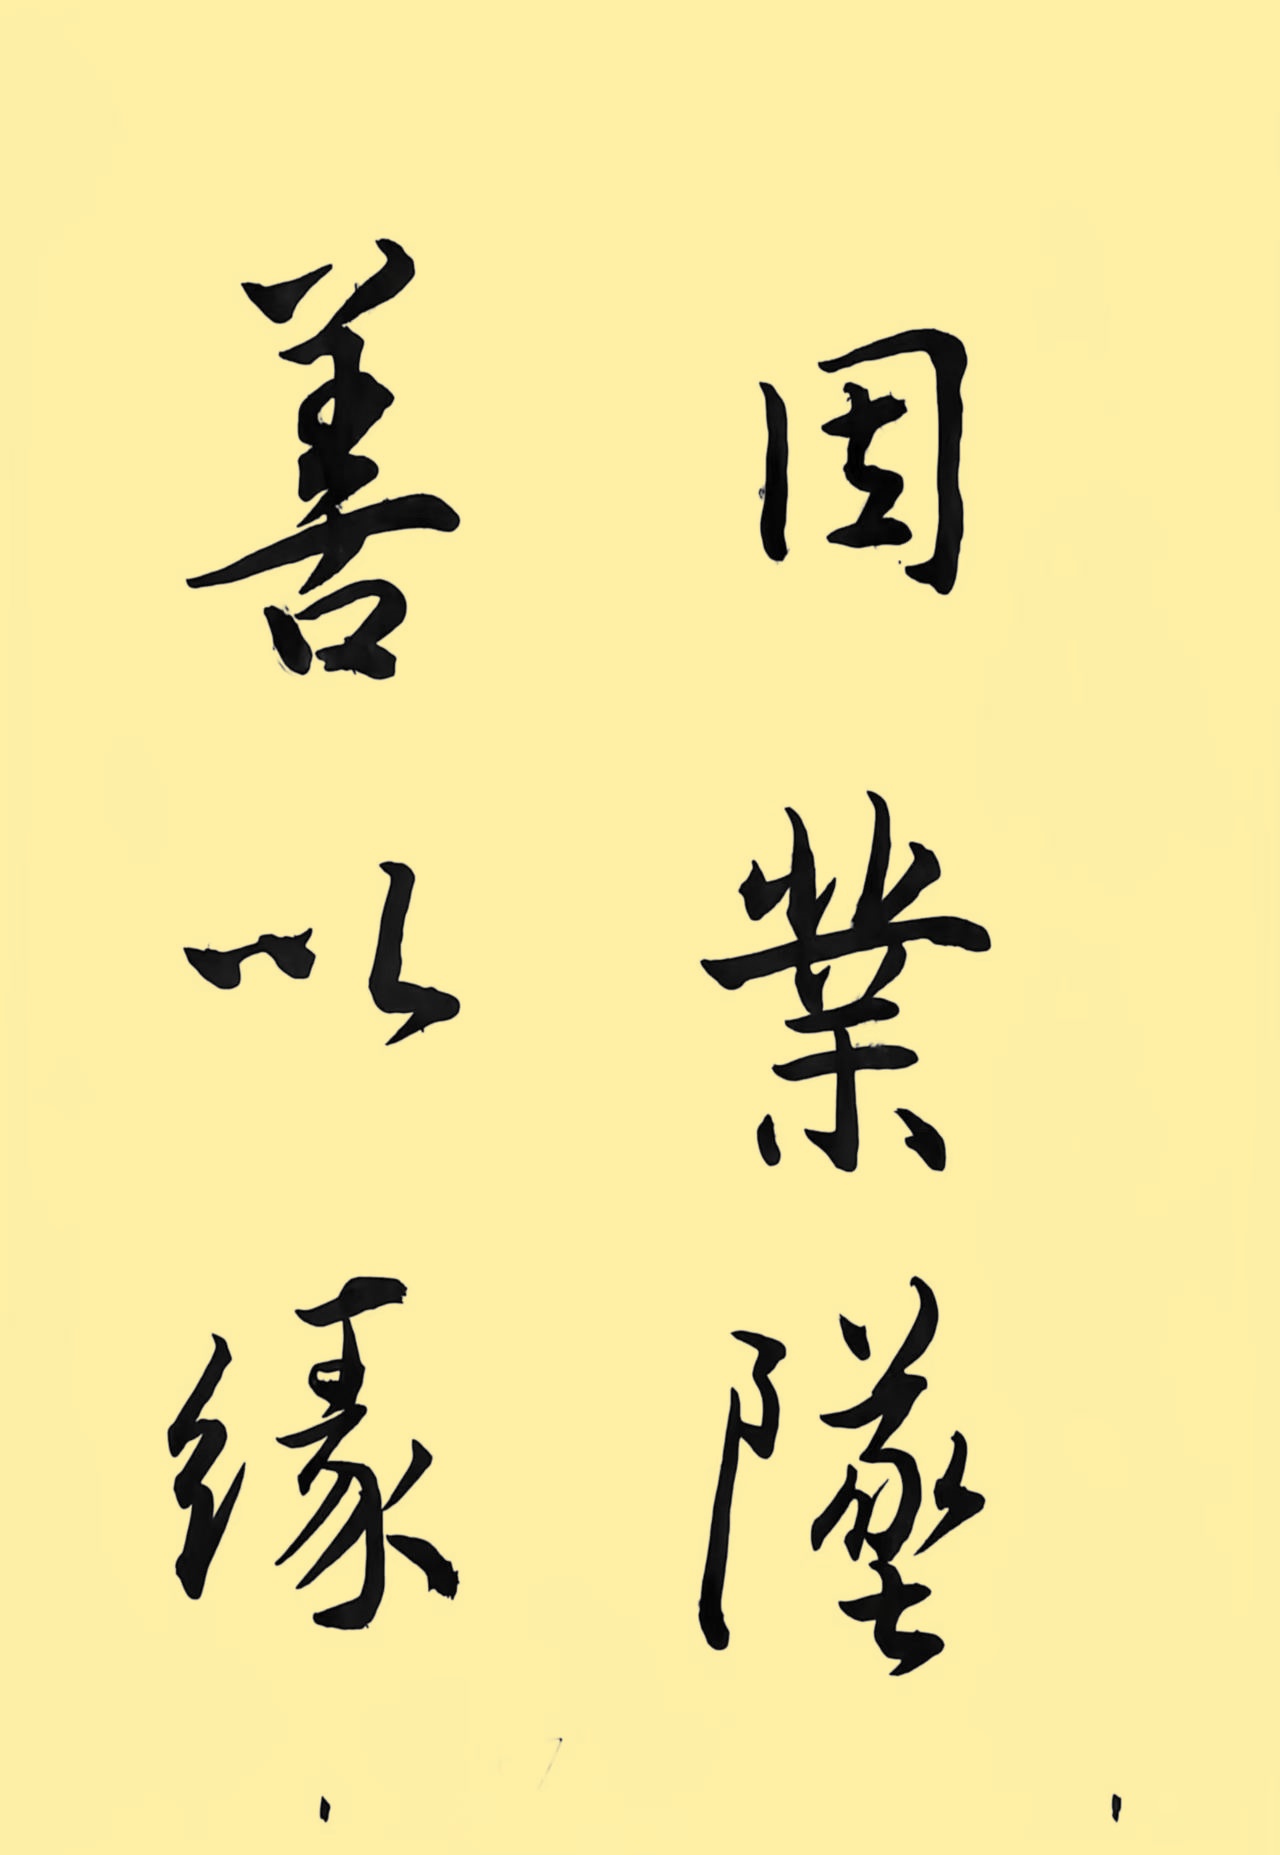 因業墜
善以緣